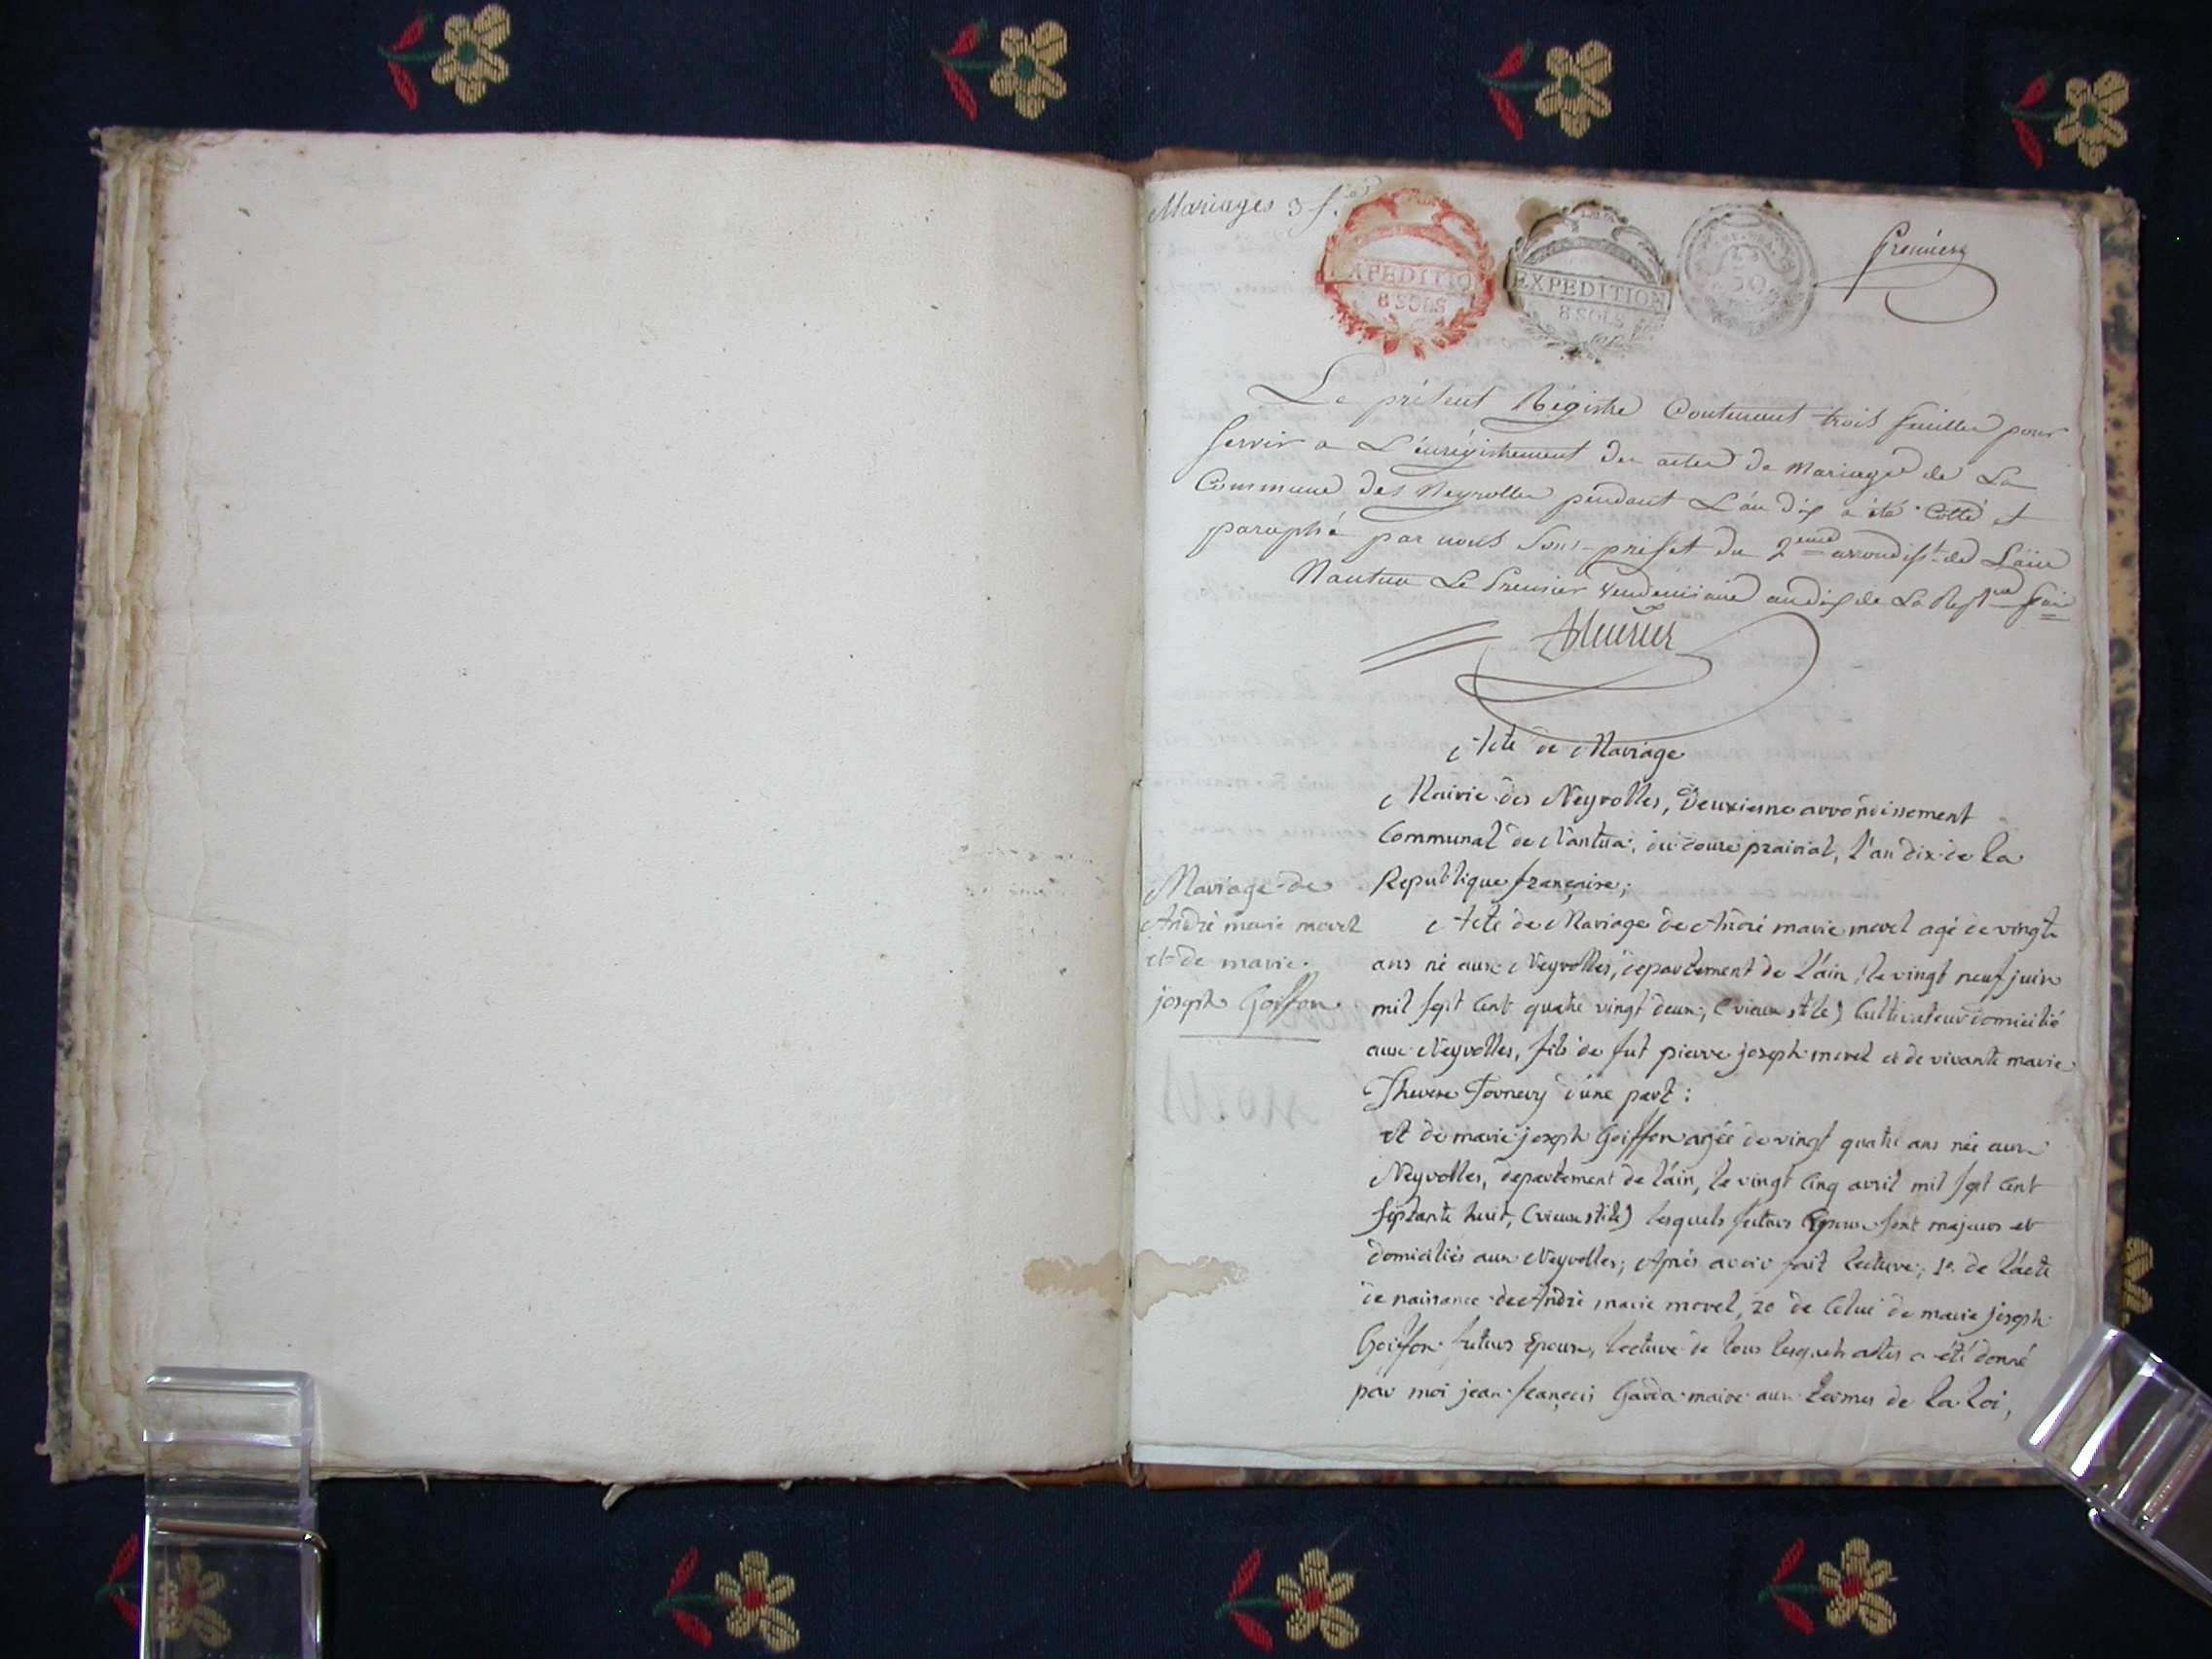 Mariages 3 f.
EXPEDITION
8 SOLS
EXPEDITION
8 SOLS
50
Premier
Le présent Régistre Contenant trois feuilles pour
Servir a L'enrégistrement des actes de Mariage de La
Commune des Neyrolles pendant L'an dix a été Cotté et
paraphé par nous Sous-préfet du 2eme arrondisst. de L'ain
Nantua Le Premier Vendemiaire an dix de La Repque fçaise
Acte de Mariage
Mairie des Neyrolles, Deuxieme arrondissement
Communal de Nantua, du douze prairial, l'an dix de la
Republique française;
Mariage de
André marie morel
et de marie
joseph Goiffon
Acte de Mariage de André marie morel agé de vingt
ans né aux Neyrolles, departement de l'ain, le vingt neuf juin
mil sept Cent quatre vingt deux, (vieux stile) Cultivateur domicilié
aux Neyrolles, fils de fut pierre joseph morel et de vivante marie
Therese Tornery d'une part:
et de marie joseph Goiffon agée de vingt quatre ans née aux
Neyrolles, departement de l'ain, le vingt Cinq avril mil sept Cent
septante huit, (vieux stile) lesquels futurs Epoux sont majeurs et
domiciliés aux Neyrolles; Après avoir fait lecture, 1o. de l'acte
de naissance de André marie morel, 2o de Celui de marie joseph
Goiffon futurs Epoux, lecture de tous lesquels actes a été donné
par moi jean françois Garda maire aux termes de la loi,